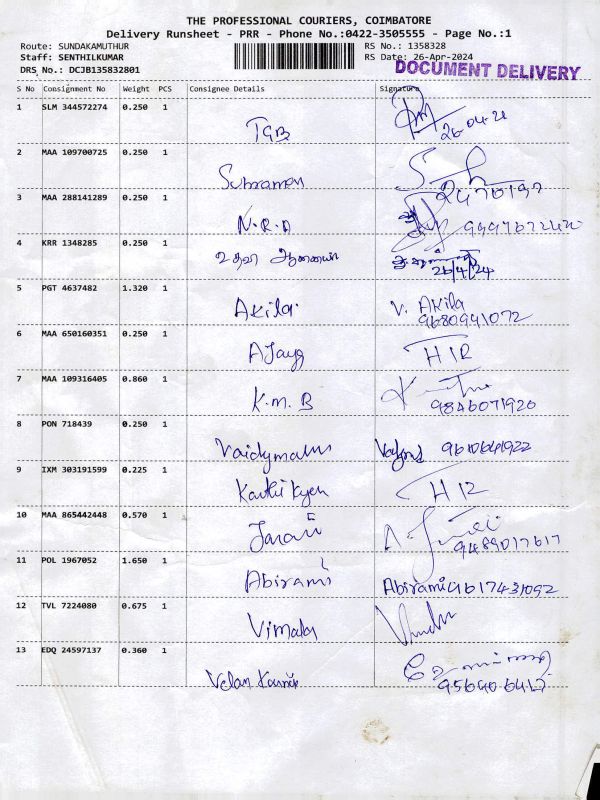 THE PROFESSIONAL COURIERS, COIMBATORE
Delivery Runsheet - PRR - Phone No.:0422-3505555 - Page No.:1
Route: SUNDAKAMUTHUR RS No.: 1358328
Staff: SENTHILKUMAR RS Date: 26-Apr-2024
DRS No.: DCJB135832801 DOCUMENT DELIVERY
S No Consignment No Weight PCS Consignee Details Signature
1 SLM 344572274 0.250 1
TGB 26-04-24
2 MAA 109700725 0.250 1
Subraman
3 MAA 288141289 0.250 1
N.R.A
4 KRR 1348285 0.250 1
உதவி ஆணையர் 26/4/24
5 PGT 4637482 1.320 1
Akila V. Akila
9680941072
6 MAA 650160351 0.250 1
AJay HIR
7 MAA 109316405 0.860 1
K.M.B
9846071920
8 PON 718439 0.250 1
9 IXM 303191599 0.225 1
HIR
10 MAA 865442448 0.570 1
9489017617
11 POL 1967052 1.650 1
Abirami Abirami 9617431092
12 TVL 7224080 0.675 1
Vimala
13 EDQ 24597137 0.360 1